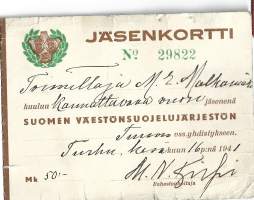 JÄSENKORTTI
No 29822
Toimittaja M. E.
kuuluu Kannattavana
jäsenenä
SUOMEN VÄESTÖNSUOJELUJÄRJESTÖN
Turun vss.yhdistykseen.
Turku, kesä kuun 16 p:nä 1941
Mk 50:-
Rahastonhoitaja